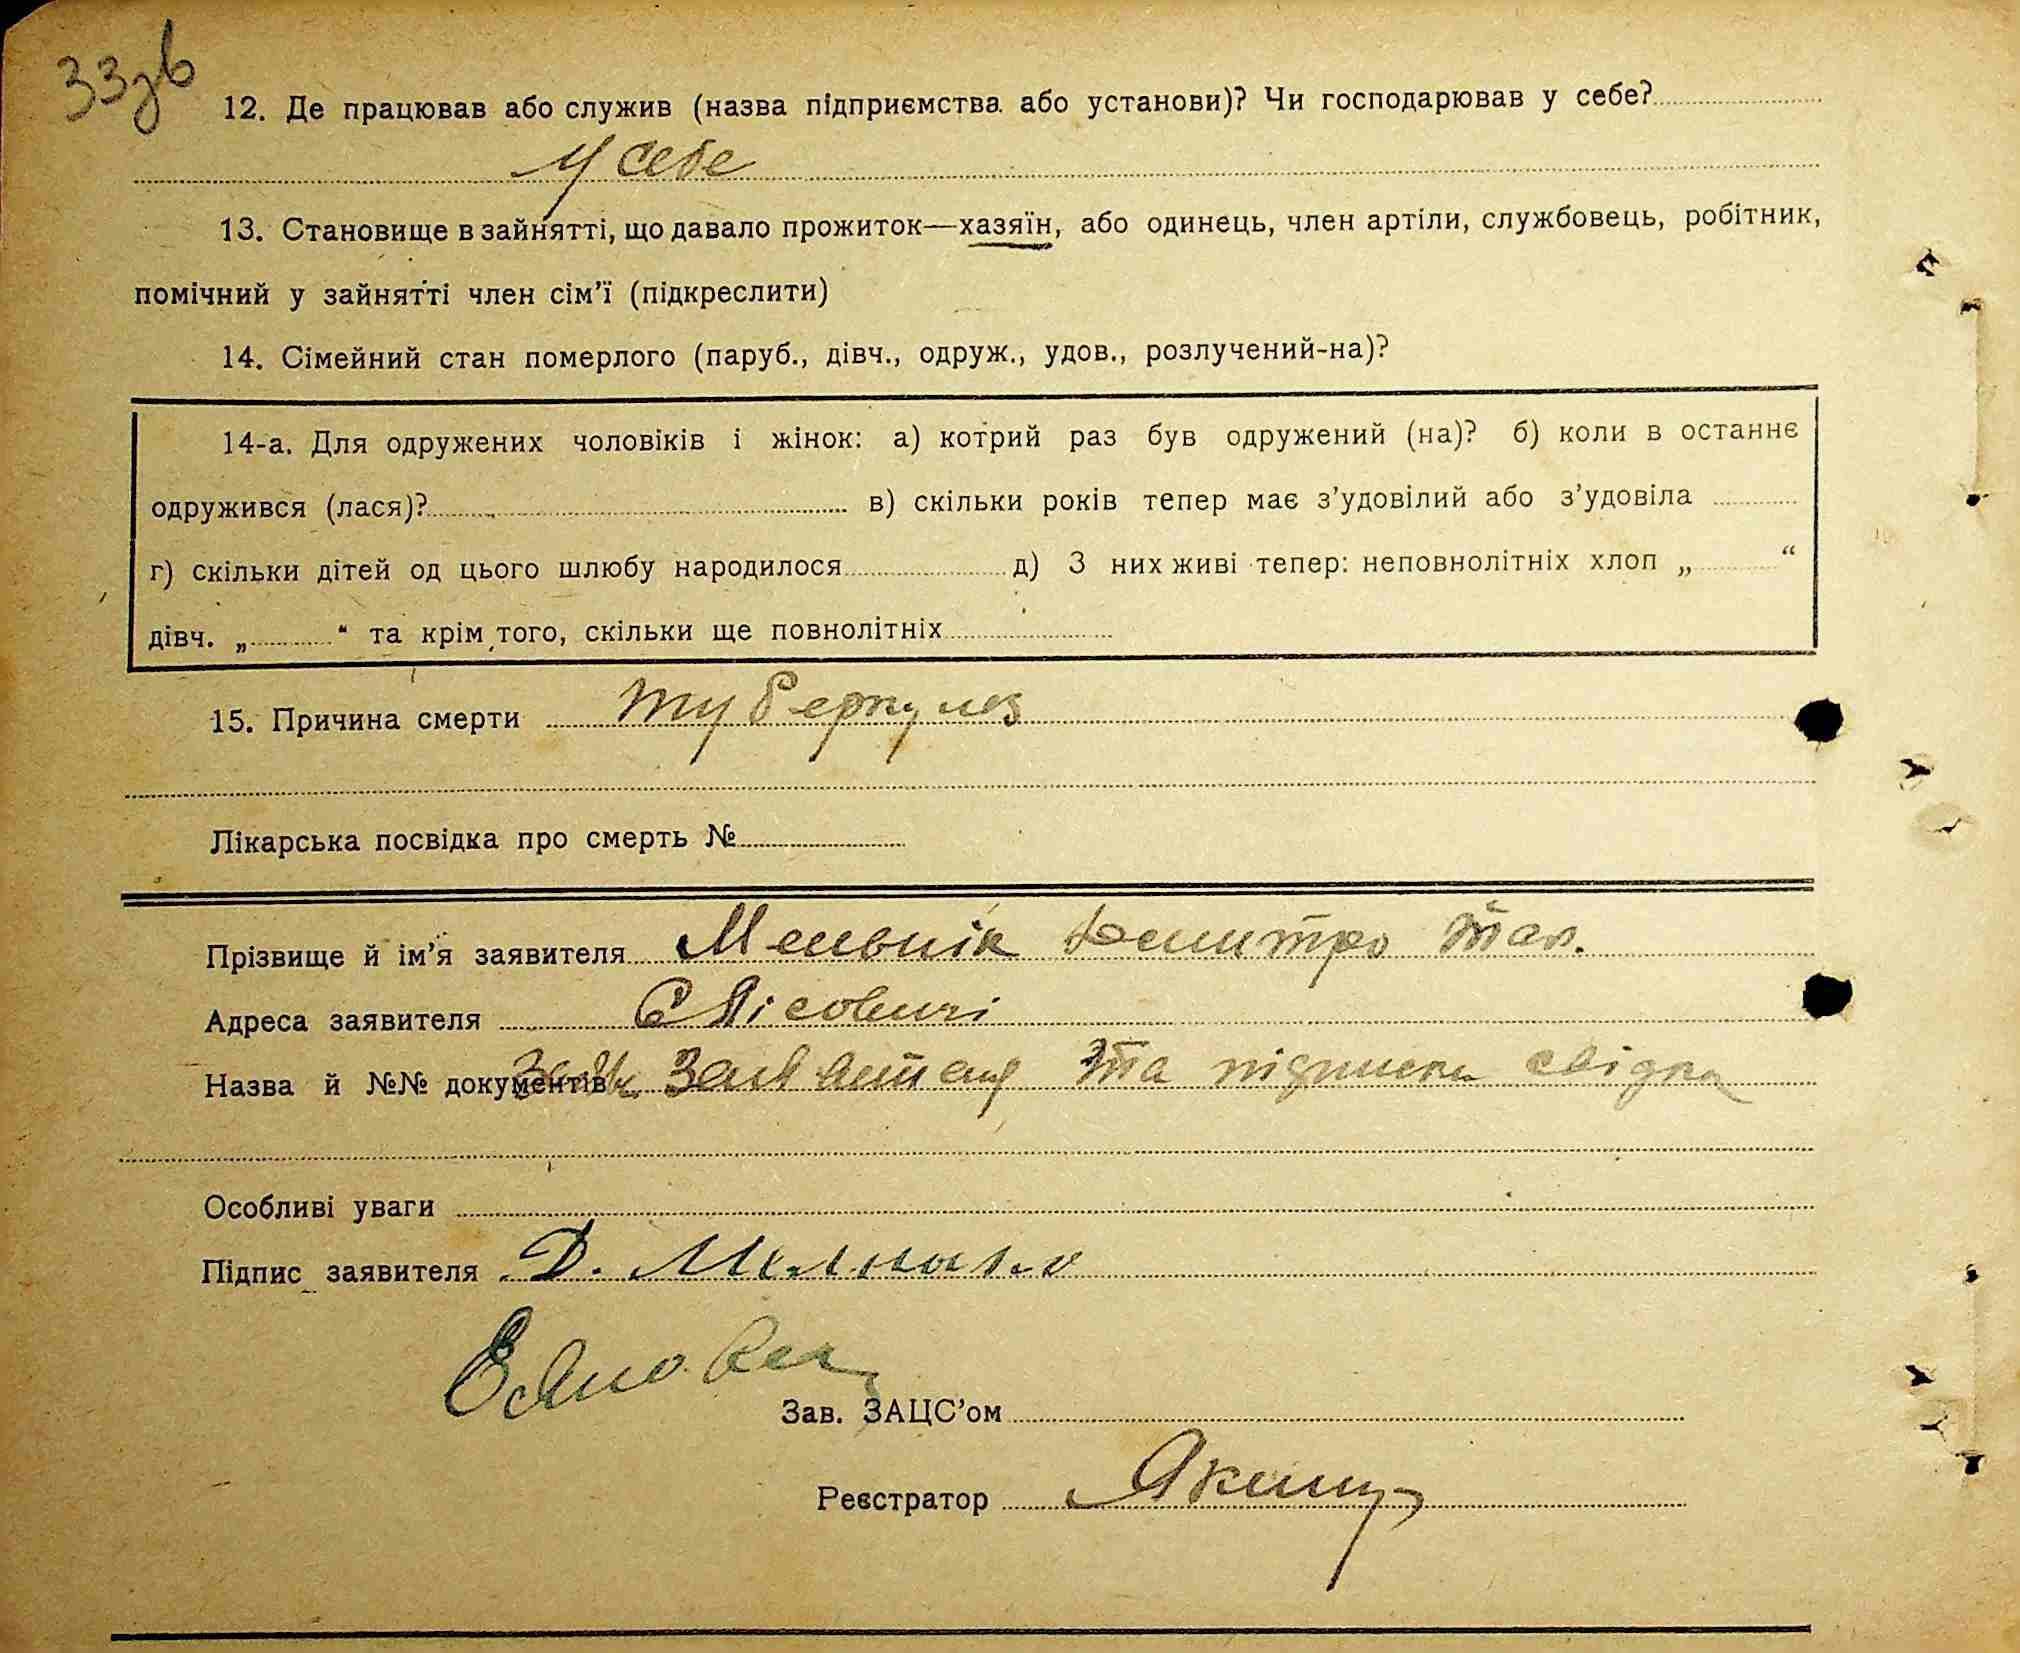 33зв
12. Де працював або служив (назва підприємства або установи)? Чи господарював у себе?
У себе
13. Становище в зайнятті, що давало прожиток—хазяїн, або одинець, член артіли, службовець, робітник,
помічний у зайнятті член сім’ї (підкреслити)
14. Сімейний стан померлого (паруб., дівч., одруж., удов., розлучений-на)?
14-а. Для одружених чоловіків і жінок: а) котрий раз був одружений (на)? б) коли в останнє
одружився (лася)? в) скільки років тепер має з’удовілий або з’удовіла
г) скільки дітей од цього шлюбу народилося д) З них живі тепер: неповнолітніх хлоп „ “
дівч. „ “ та крім того, скільки ще повнолітніх
15. Причина смерти туберкульоз
Лікарська посвідка про смерть №
Прізвище й ім’я заявителя Мельнік Дмитро
Адреса заявителя С Лісовичі
Назва й №№ документів та підписки свідка
Особливі уваги
Підпис заявителя Д.
Зав. ЗАЦС’ом
Реєстратор